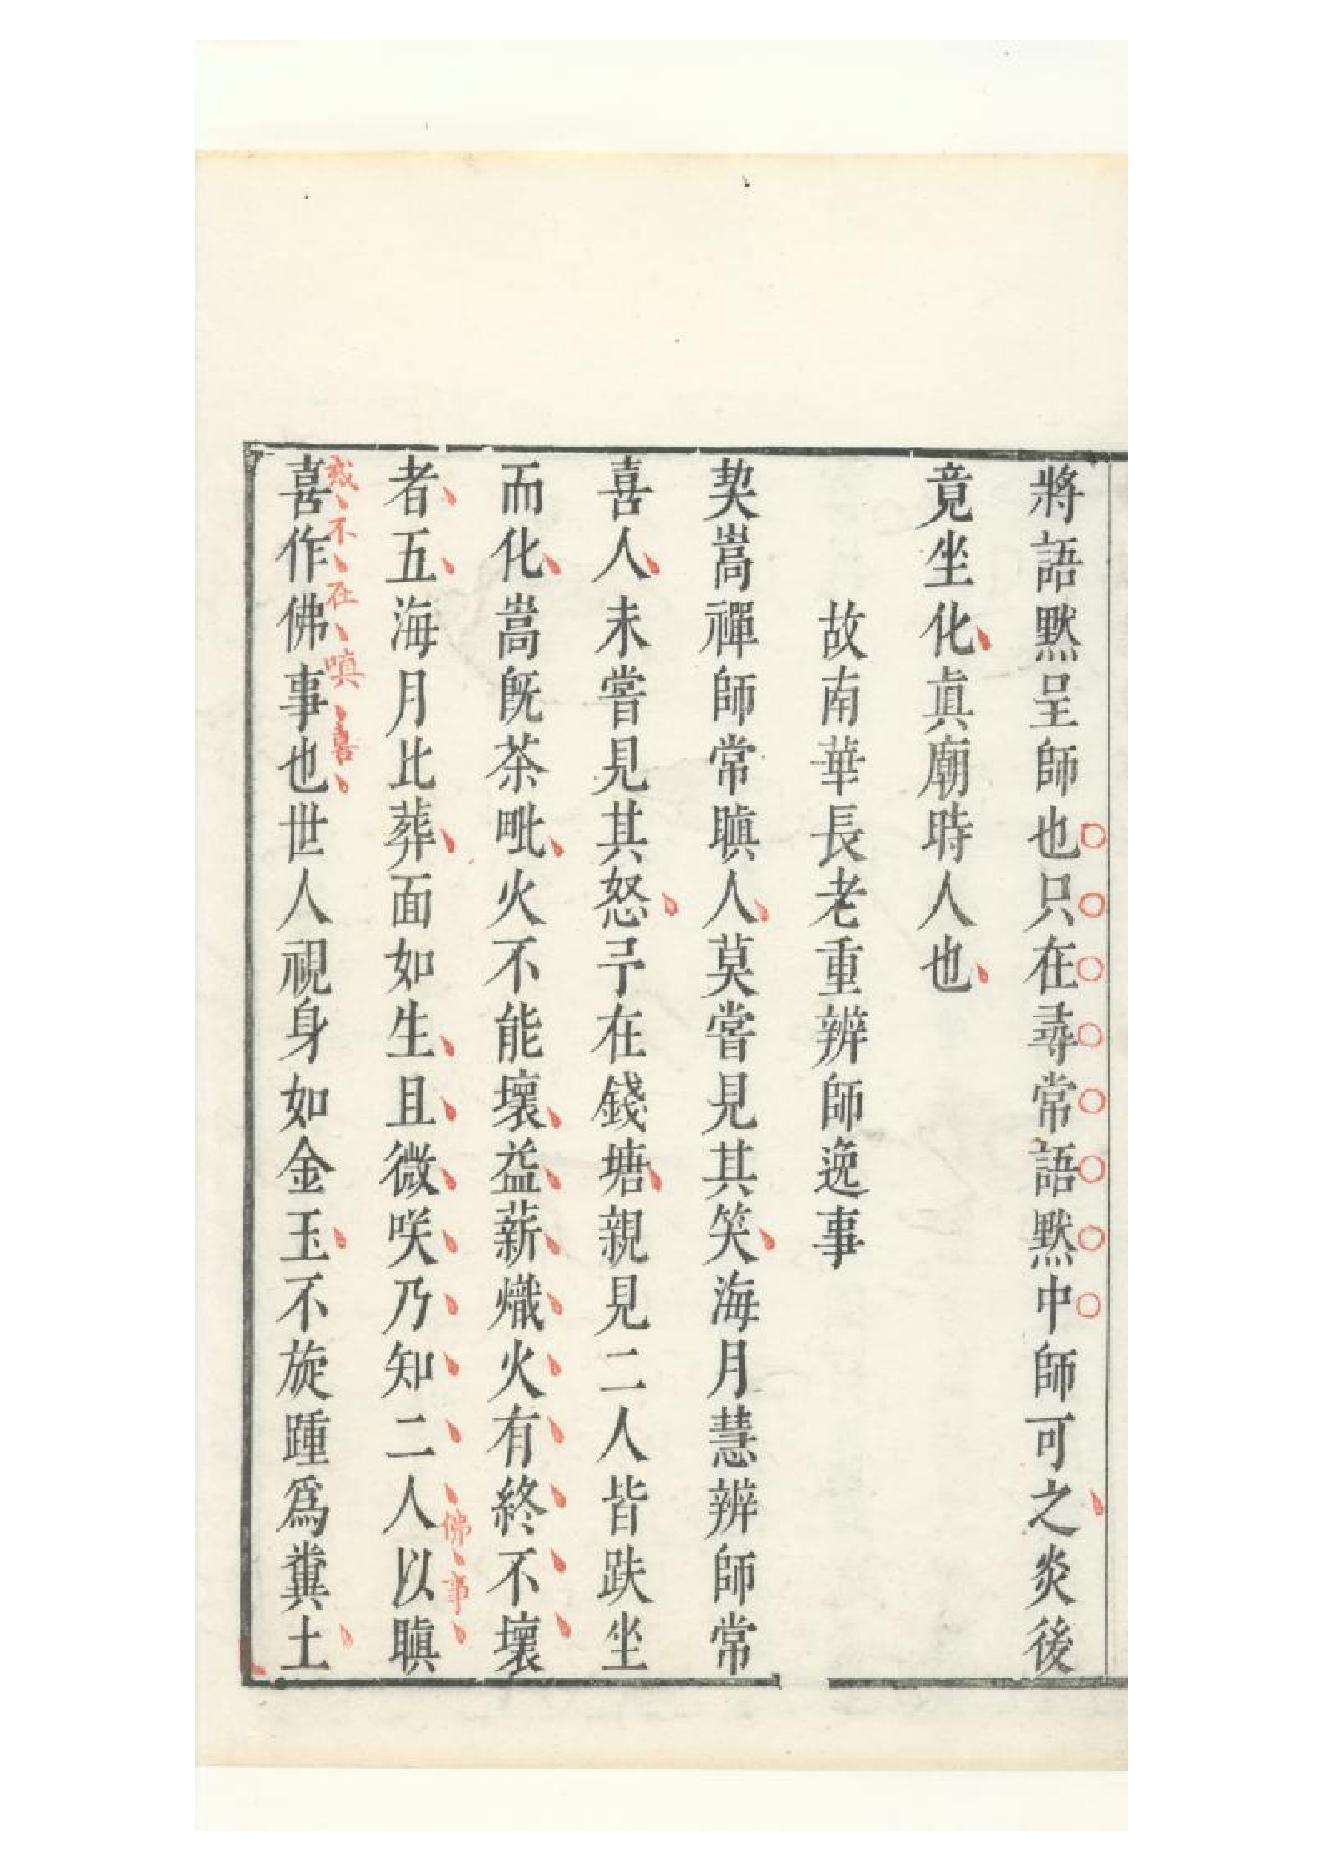 將語默呈師也只在尋常語默中師可之炎後
竟坐化眞廟時人也
故南華長老重辨師逸事
契嵩禪師常瞋人莫嘗見其笑海月慧辨師常
喜人未嘗見其怒予在錢塘親見二人皆趺坐
而化嵩旣茶毗火不能壞益薪熾火有終不壞
者五海月比葬面如生且微咲乃知二人以瞋
佛事
喜作佛事也世人視身如金玉不旋踵爲糞土
不在嗔喜